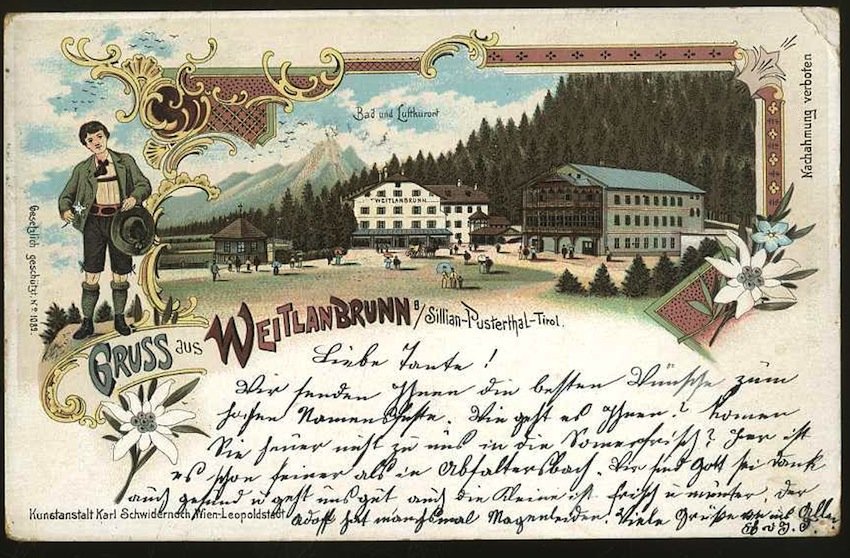 Bad und Luftkurort
WEITLANBRUNN
Nachahmung verboten
Gesetzlich geschützt. No 1082.
GRUSS aus WEITLANBRUNN B/ Sillian-Pusterthal-Tirol.
Liebe Tante!
Wir senden Ihnen die besten Wünsche zum
hohen Namensfeste. Wie geht es Ihnen? komen
Sie heuer nicht zu uns in die Somerfrisch? hier ist
es schon feiner als in Abfaltersbach. Wir sind Gott sei dank
auch gesund u geht uns gut auch die Kleine ist frisch u munter, der
Adolf hat manchsmal Magenleiden. Viele Grüße
Kunstanstalt Karl Schwidernoch, Wien-Leopoldstadt